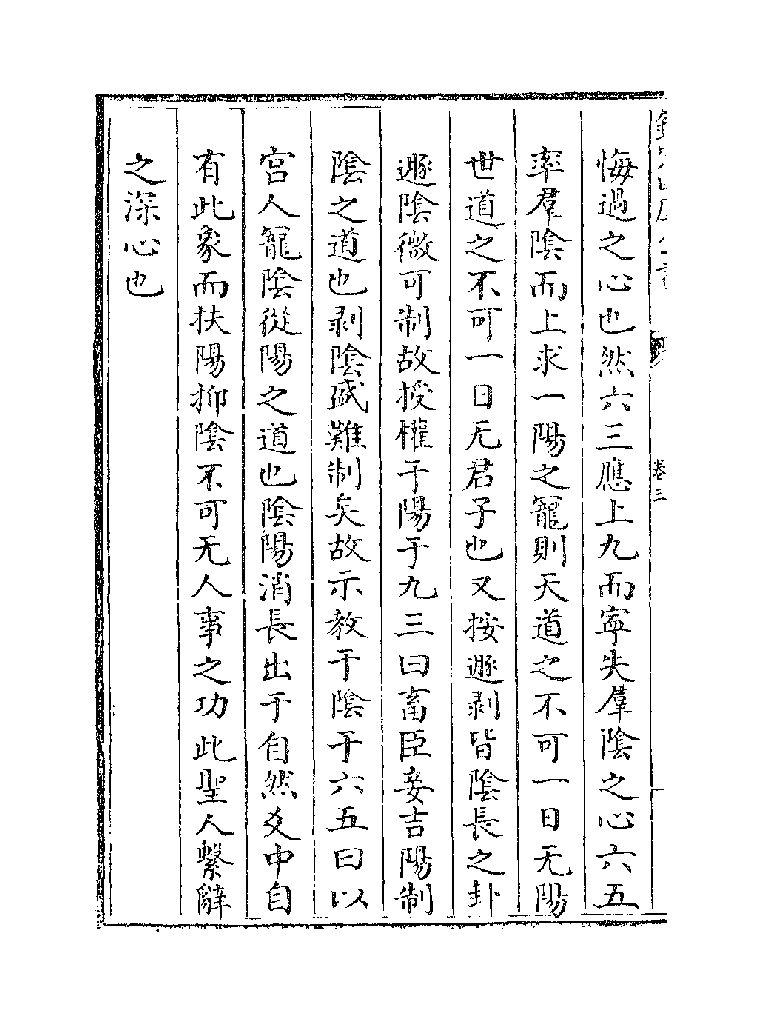 悔過之心也然六三應上九而寧失羣陰之心六五
率羣陰而上求一陽之寵則天道之不可一日无陽
世道之不可一日无君子也又按遯剥皆陰長之卦
遯陰微可制故授權于陽于九三曰畜臣妾吉陽制
陰之道也剥陰盛難制矣故示教于陰于六五曰以
宮人寵陰從陽之道也陰陽消長出于自然爻中自
有此象而扶陽抑陰不可无人事之功此聖人繫辭
之深心也
卷三